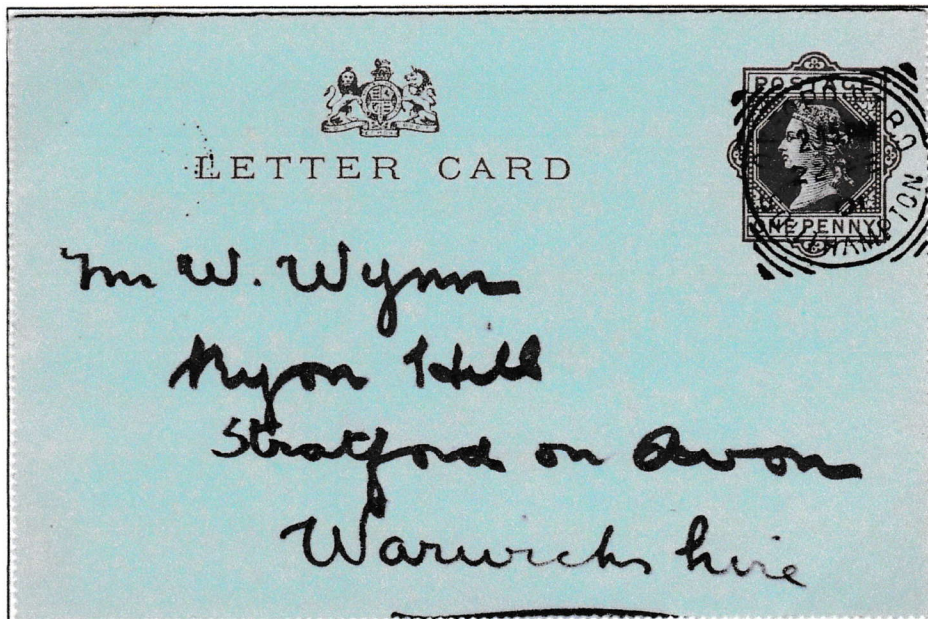 LETTER CARD
POSTAGE
ONE PENNY
Mr W. Wynn
Ryon Hill
Stratford on Avon
Warwickshire